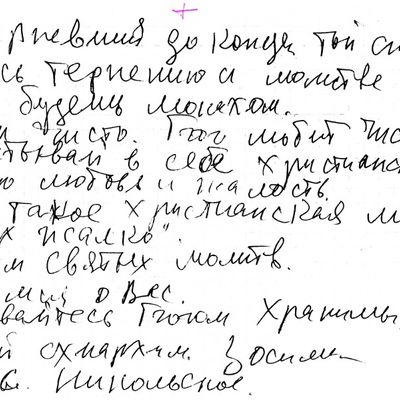 рпевший до конца той сп
сь терпению и молитве
будешь монахом.
и чисто. Бог любит чис
тывай в себе христианс
ю любовь и жалость.
такое христианская лю
х жалко".
м святых молитв.
о Вас.
вайтесь Богом хранимы
й схиархим. Зосима
с. Никольское.